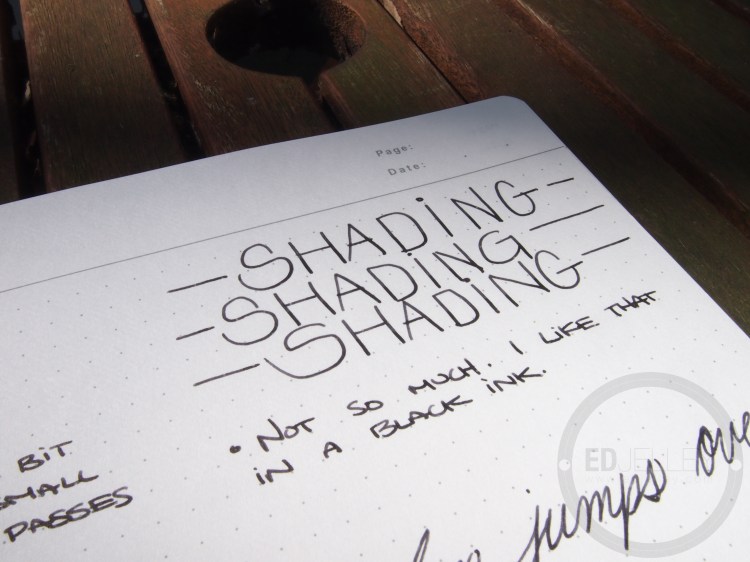 Page:
Date:
SHADiNG
SHADiNG
SHADiNG
• NOT SO MUCH. I LIKE THAT
IN A BLACK iNK.
BiT
SMALL
PASSES
jumps over
EDJELLEY